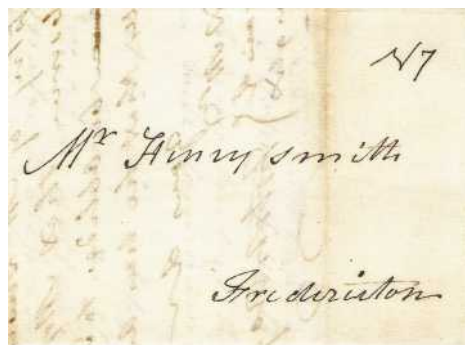 N7
Mr Henry Smith
Fredericton